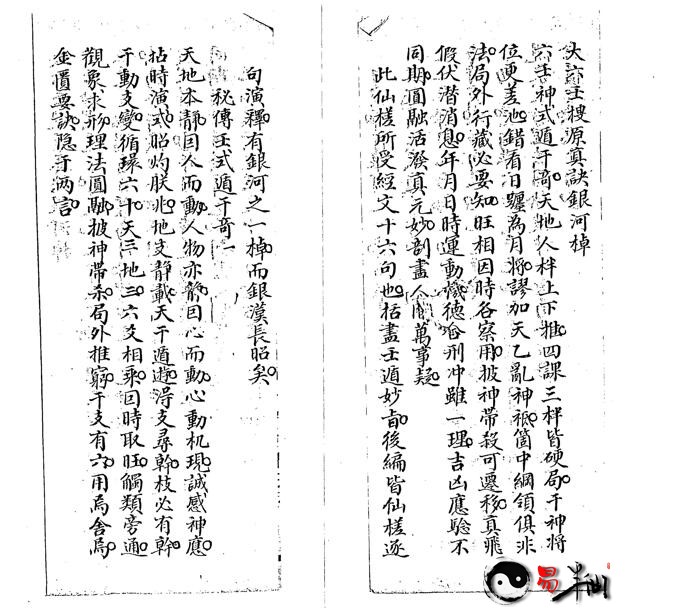 大六壬搜源真訣銀河棹
六壬神式遁干奇天地人柈上下推四課三柈皆硬局干神將
位更差池錯看日躔為月將謬加天乙亂神祗箇中綱領俱非
法局外行藏必要知旺相因時各察用披神帶殺可遷移真飛
假伏潛消息年月日時運動機德合刑冲雖一理吉凶應驗不
同期圓融活潑真元妙剖盡人間萬事疑
此仙槎所受經文十六句也括盡壬遁妙旨後編皆仙槎逐
句演釋有銀河之一棹而銀漢長昭矣
秘傳壬式遁干奇一
天地本靜因人而動人物亦靜因心而動心動机現誠感神應
拈時演式昭灼朕兆地支靜載天干遁遊得支尋幹枝必有幹
干動支變循環六十天三地三六爻相乘因時取旺觸類旁通
觀象求形理法圓融披神帶杀局外推窮干支有六用焉舍焉
金匱要訣隐于兩言
易半仙